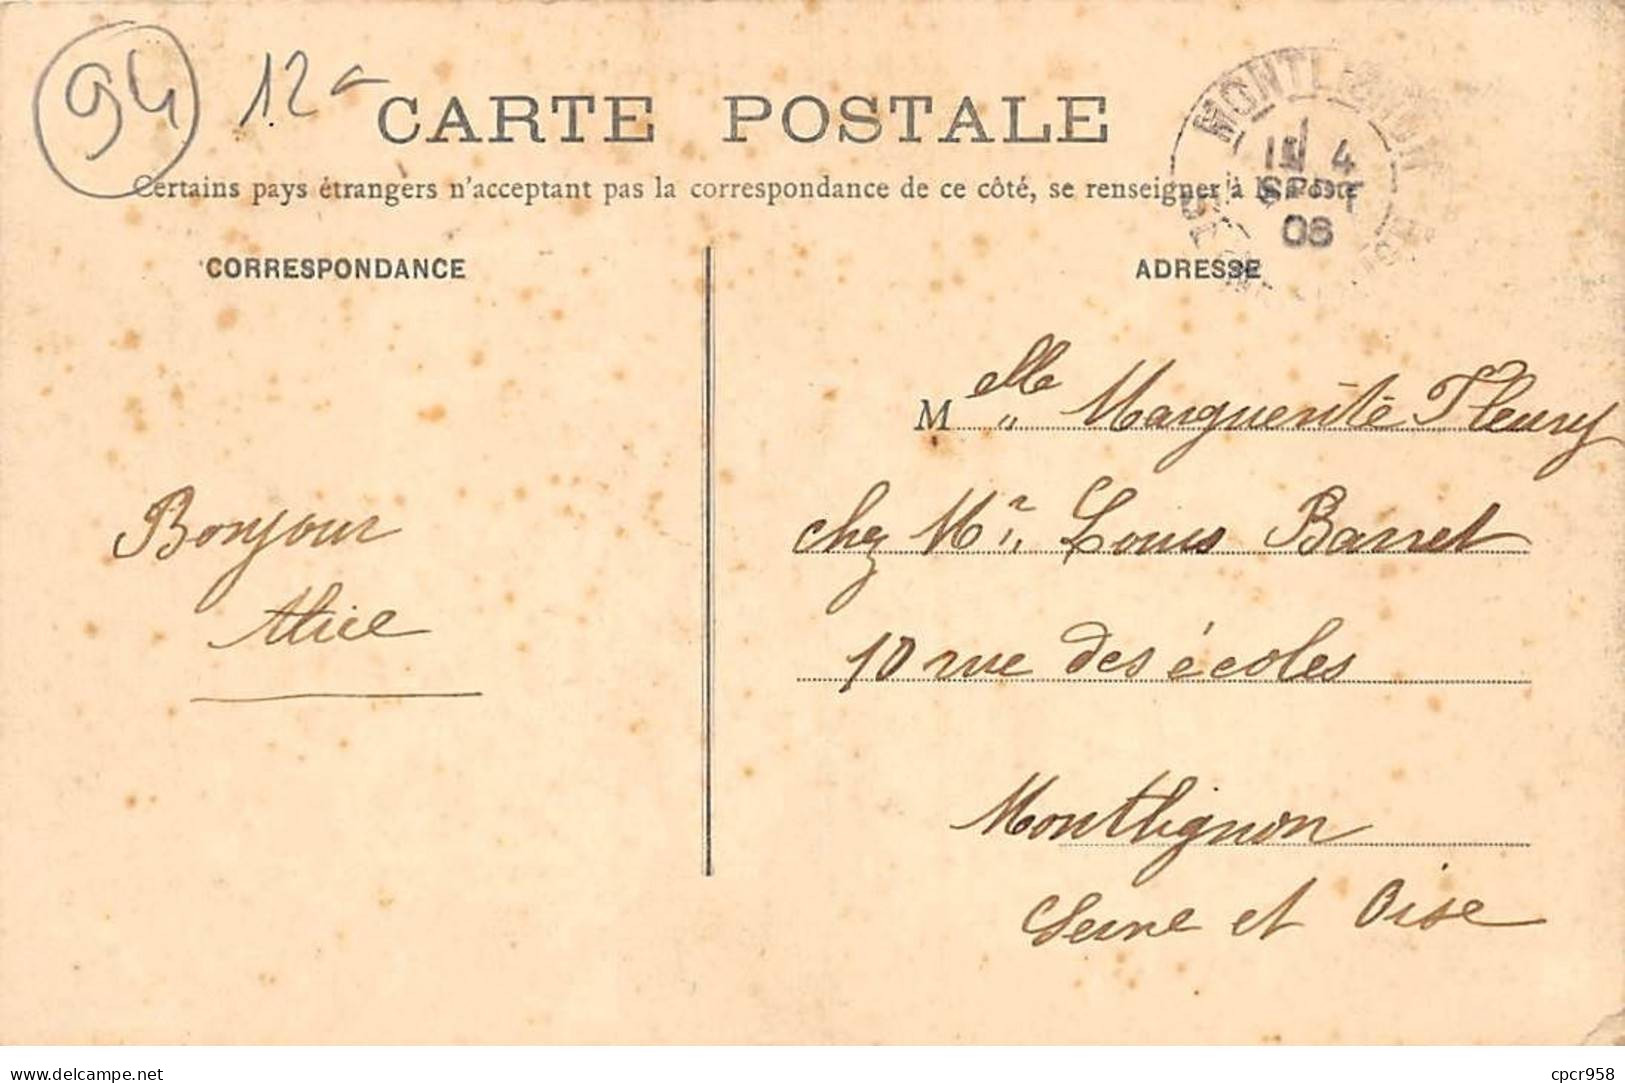 94
12
CARTE POSTALE
Certains pays étrangers n'acceptant pas la correspondance de ce côté, se renseigner à la Poste
CORRESPONDANCE
ADRESSE
MONTLIGNON
4
SEPT
06
Bonjour
Alice
Melle Marguerite Fleury
chez Mr. Louis Barret
10 rue des écoles
Montlignon
Seine et Oise
www.delcampe.net
cpcr958